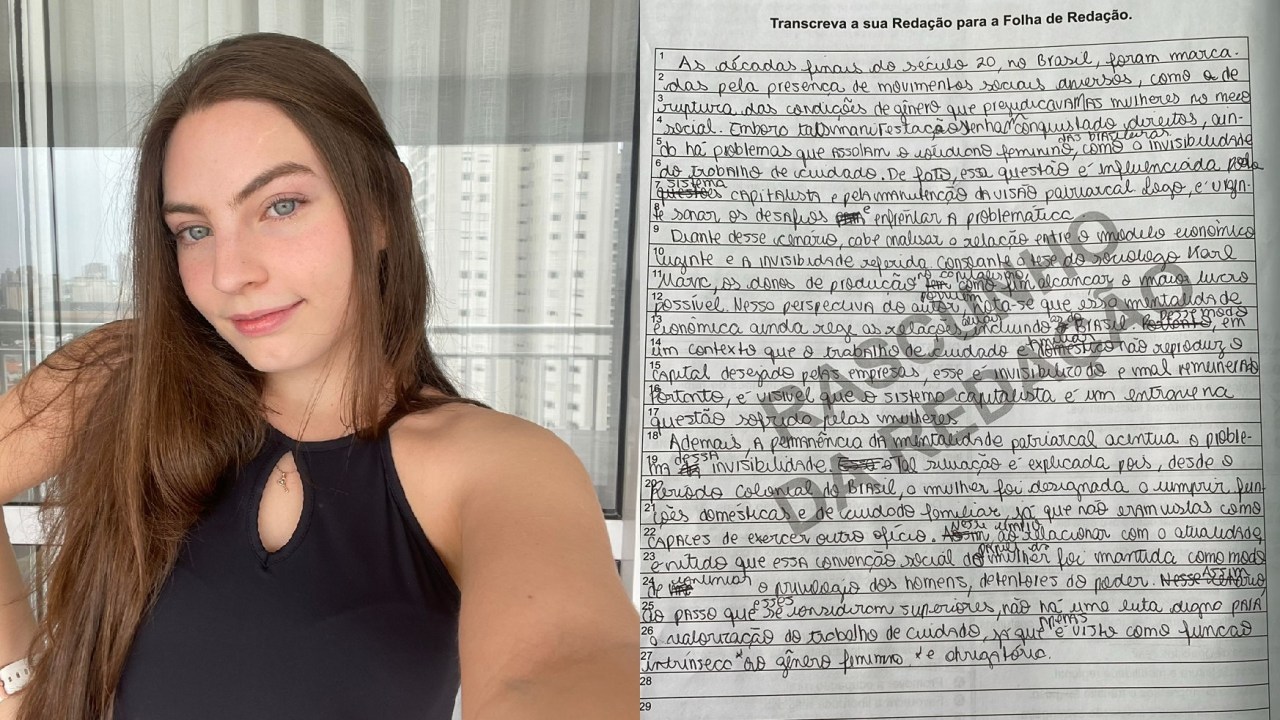 Transcreva a sua Redação para a Folha de Redação.
1 As décadas finais do século 20, no Brasil, foram marca-
2 das pela presença de movimentos sociais diversos, como a de
3 ruptura das condições de gênero que prejudicavam as mulheres no meio
4 social. Embora tais manifestações tenham conquistado direitos, ain-
5 da há problemas que assolam o cotidiano feminino, como a invisibilidade
6 do trabalho de cuidado. De fato, essa questão é influenciada pelo
7 sistema capitalista e pela manutenção da visão patriarcal logo, é urgen-
8 te sanar os desafios e enfrentar a problemática
9 Diante desse cenário, cabe analisar a relação entre o modelo econômico
10 vigente e a invisibilidade referida consoante a tese do sociólogo Karl
11 Marx, os donos de produção no capitalismo como fim alcançar o maior lucro
12 possível. Nessa perspectiva do autor, nota-se que essa mentalidade
13 econômica ainda rege as relações incluindo Brasil modo, em
14 um contexto que o trabalho de cuidado familiar não reproduz o
15 capital desejado pelas empresas, esse é invisibilizado e mal remunerado
16 Portanto, é visível que o sistema capitalista é um entrave na
17 questão sofrida pelas mulheres
18 Ademais, a permanência da mentalidade patriarcal acentua o proble-
19 ma dessa invisibilidade. Tal situação é explicada pois, desde o
20 Período colonial do Brasil, a mulher foi designada a cumprir fun-
21 ções domésticas e de cuidado familiar, já que não eram vistas como
22 capazes de exercer outro ofício. ao relacionar com a atualidade,
23 é nítido que essa convenção social da mulher foi mantida como modo
24 de o privilégio dos homens, detentores do poder. Assim
25 ao passo que esses se consideram superiores, não há uma luta digna para
26 a valorização do trabalho de cuidado, já que é vista como função
27 intrínseca ao gênero feminino e obrigatória.
28
29
RASCUNHO
DA REDAÇÃO